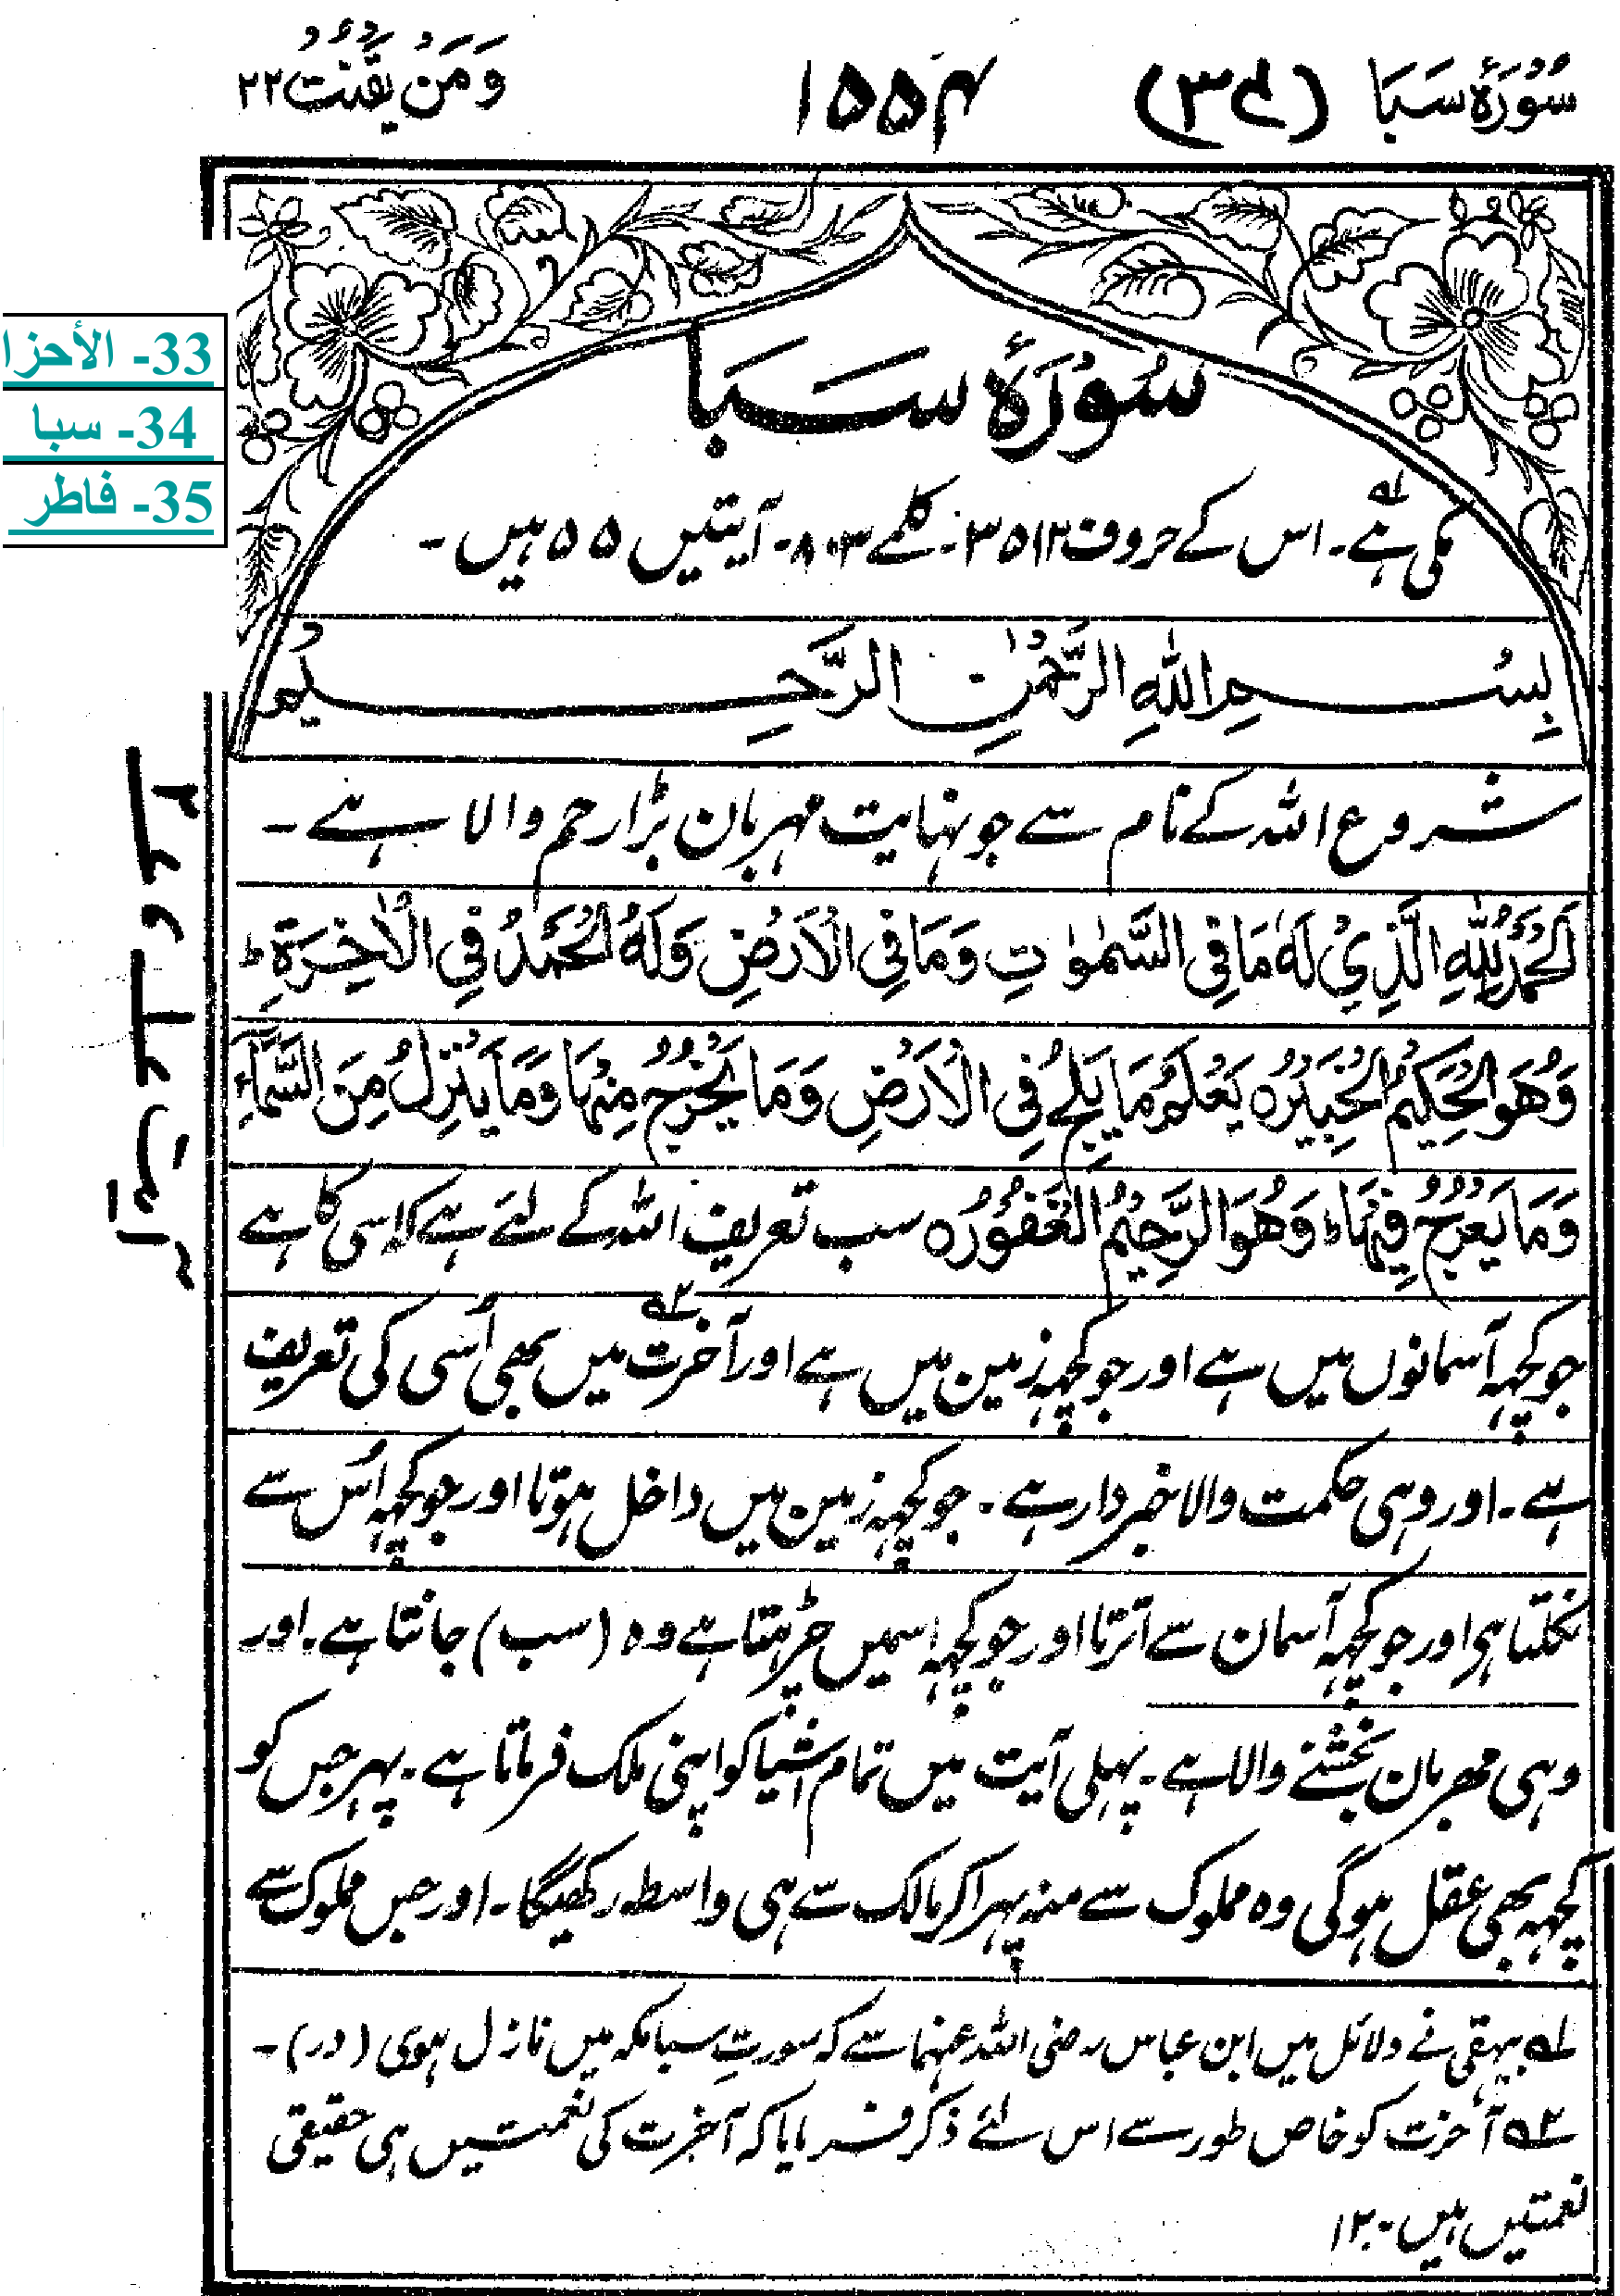 سُوْرَۃُ سَبَا (۳۴) ۱۵۵۴ وَمَنْ یَّقْنُتْ ۲۲
33- الأحزا
34- سبا
35- فاطر
سُوْرَۃُ سَبَا
مکی ہے۔ اس کے حروف ۳۵۱۲۔ کلمے ۸۰۳۔ آیتیں ۵۵ ہیں۔
بِسْمِ اللّٰهِ الرَّحْمٰنِ الرَّحِیْمِ
شروع اللہ کے نام سے جو نہایت مہربان بڑا رحم والا ہے۔
اَلْحَمْدُ لِلّٰهِ الَّذِیْ لَهٗ مَا فِی السَّمٰوٰتِ وَمَا فِی الْاَرْضِ وَلَهُ الْحَمْدُ فِی الْاٰخِرَةِ ط
وَهُوَ الْحَكِیْمُ الْخَبِیْرُ ہ یَعْلَمُ مَا یَلِجُ فِی الْاَرْضِ وَمَا یَخْرُجُ مِنْهَا وَمَا یَنْزِلُ مِنَ السَّمَآءِ
وَمَا یَعْرُجُ فِیْهَا ط وَهُوَ الرَّحِیْمُ الْغَفُوْرُ ہ سب تعریف اللہ کے لئے ہے کہ اسی کا ہے
جو کچہہ آسمانوں میں ہے اور جو کچہہ زمین میں ہے اور آخرت۲؎ میں بھی اُسی کی تعریف
ہے۔ اور وہی حکمت والا خبردار ہے۔ جو کچہہ زمین میں داخل ہوتا اور جو کچہہ اُس سے
نکلتا ہی اور جو کچہہ آسمان سے اترتا اور جو کچہہ اسمیں چڑہتا ہے وہ (سب) جانتا ہے۔ اور
وہی مہربان بخشنے والا ہے۔ پہلی آیت میں تمام اشیا کو اپنی ملک فرماتا ہے۔ پہر جس کو
کچہہ بھی عقل ہوگی وہ مملوک سے منہ پہرا کر مالک سے ہی واسطہ رکھیگا۔ اور جس مملوک سے
۱؎ بیہقی نے دلائل میں ابن عباس رضی اللہ عنہما سے کہ سورتِ سبا مکہ میں نازل ہوی (در)۔
۲؎ آخرت کو خاص طور سے اس لئے ذکر فرمایا کہ آخرت کی نعمتیں ہی حقیقی
نعمتیں ہیں۔ ۱۲
آیت ۱ و ۲